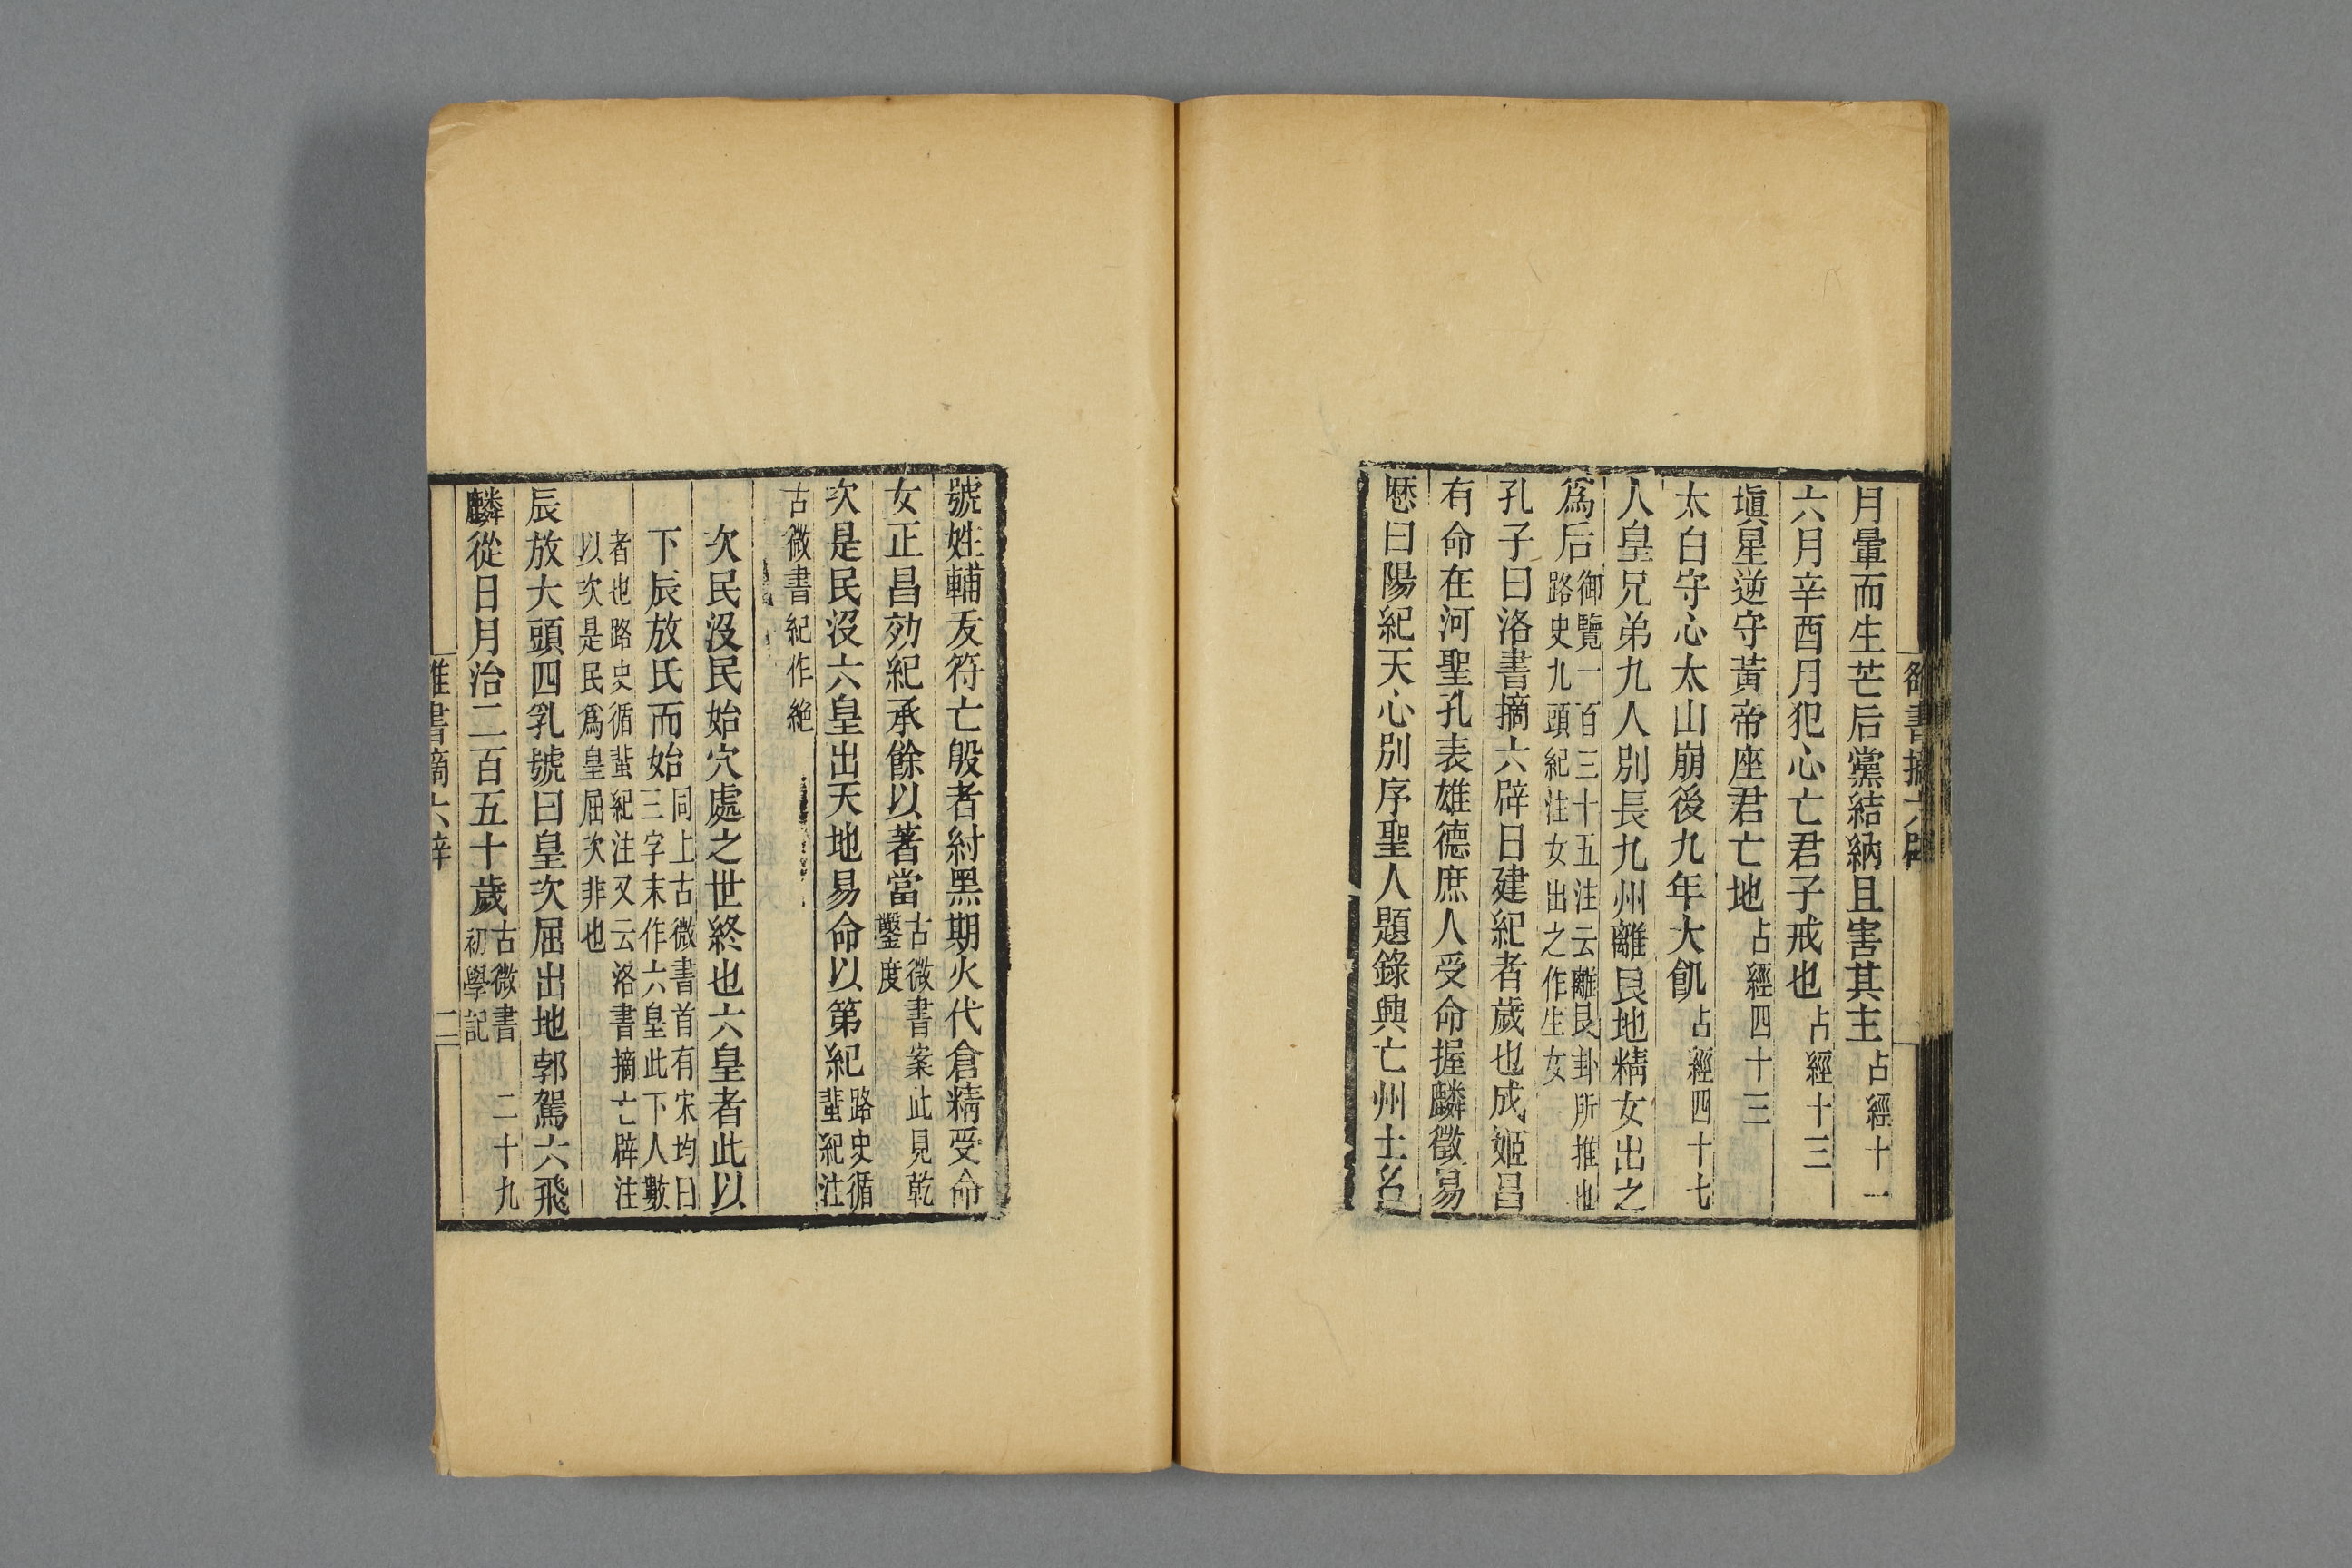 月暈而生芒后黨結納且害其主占經十一
六月辛酉月犯心亡君子戒也占經十三
塡星逆守黃帝座君亡地占經四十三
太白守心太山崩後九年大飢占經四十七
人皇兄弟九人別長九州離艮地精女出之
爲后御覽一百三十五注云離艮卦所推也
路史九頭紀注女出之作生女
孔子曰洛書摘六辟曰建紀者歲也成姬昌
有命在河聖孔表雄德庶人受命握麟徵易
歷曰陽紀天心別序聖人題錄興亡州土名
號姓輔友符亡殷者紂黑期火代倉精受命
女正昌効紀承餘以著當古微書案此見乾
鑿度
次是民沒六皇出天地易命以第紀路史循
蜚紀注
古微書紀作絶
次民沒民始穴處之世終也六皇者此以
下辰放氏而始同上古微書首有宋均曰
三字末作六皇此下人數
者也路史循蜚紀注又云洛書摘亡辟注
以次是民爲皇屈次非也
辰放大頭四乳號曰皇次屈出地郭駕六飛
麟從日月治二百五十歲古微書 二十九
初學記
隹書摘六辟 二